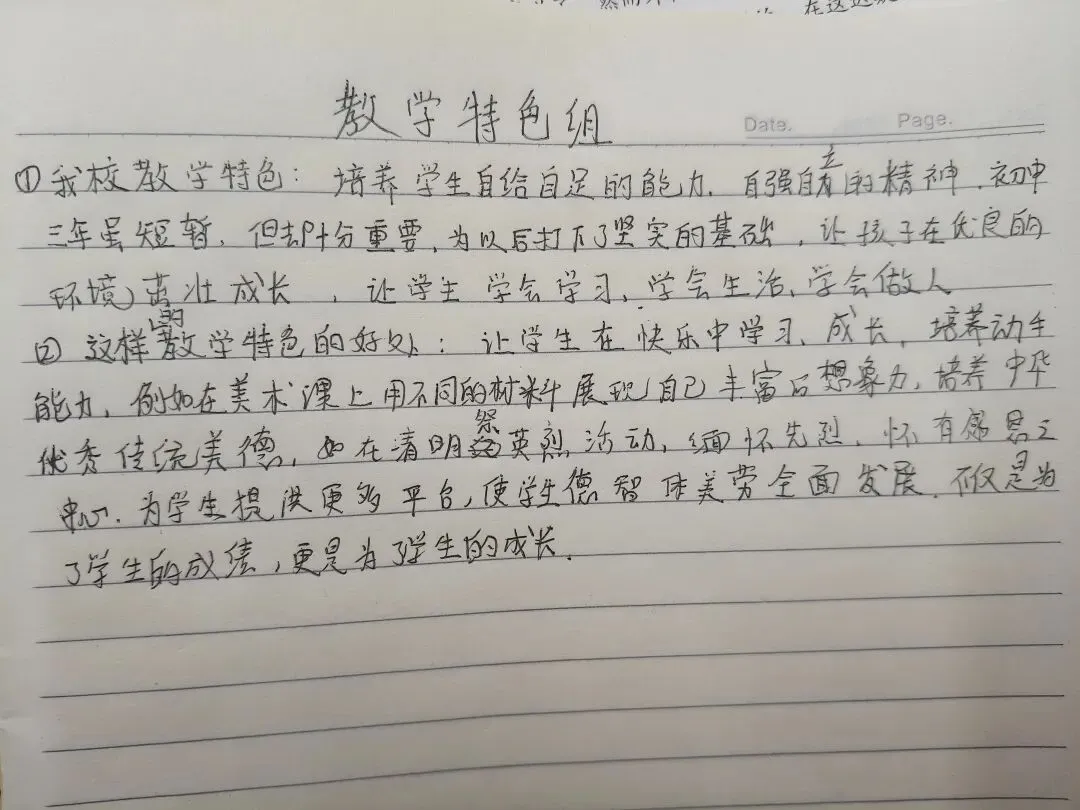 在这
教学特色组
Date. Page.
①我校教学特色：培养学生自给自足的能力，自强自立的精神．初中
三年虽短暂，但却十分重要，为以后打下了坚实的基础，让孩子在优良的
环境茁壮成长，让学生学会学习、学会生活、学会做人
②这样的教学特色的好处：让学生在快乐中学习、成长，培养动手
能力，例如在美术课上用不同的材料展现自己丰富后想象力，培养中华
优秀传统美德，如在清明祭英烈活动，缅怀先烈，怀有感恩之
心．为学生提供更多平台，使学生德智体美劳全面发展．不仅是为
了学生的成绩，更是为了学生的成长．